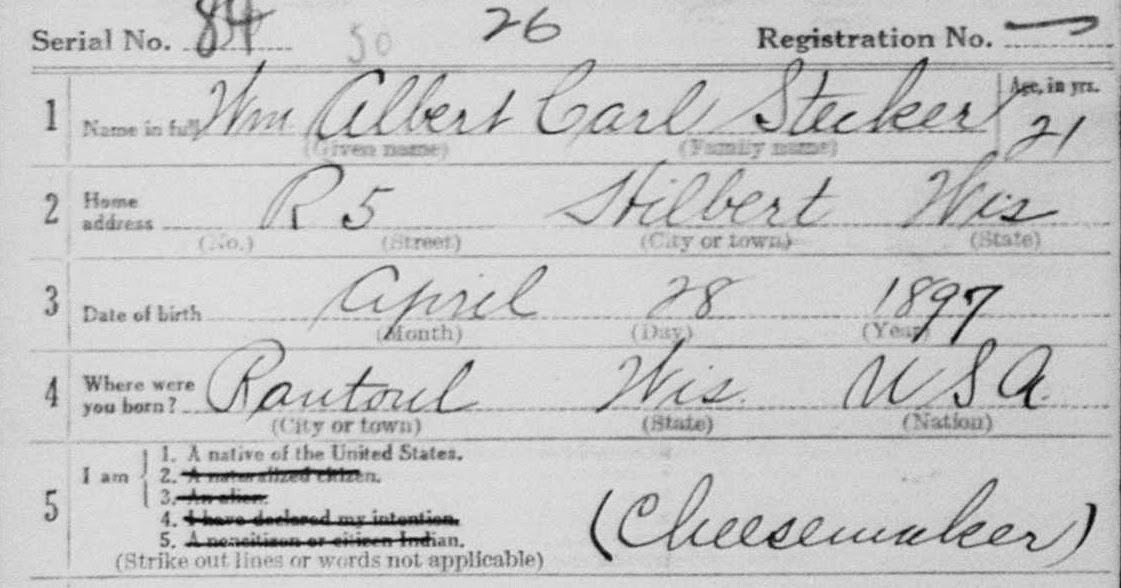 Serial No. 84 50 26 Registration No.
1 Name in full Wm Albert Carl Stecker Age, in yrs.
(Given name) (Family name) 21
2 Home address R 5 Hilbert Wis
(No.) (Street) (City or town) (State)
3 Date of birth April 28 1897
(Month) (Day) (Year)
4 Where were you born? Rantoul Wis. U S A.
(City or town) (State) (Nation)
5 I am
1. A native of the United States.
2. A naturalized citizen.
3. An alien.
4. I have declared my intention.
5. A noncitizen or citizen Indian.
(Strike out lines or words not applicable)
(Cheesemaker)